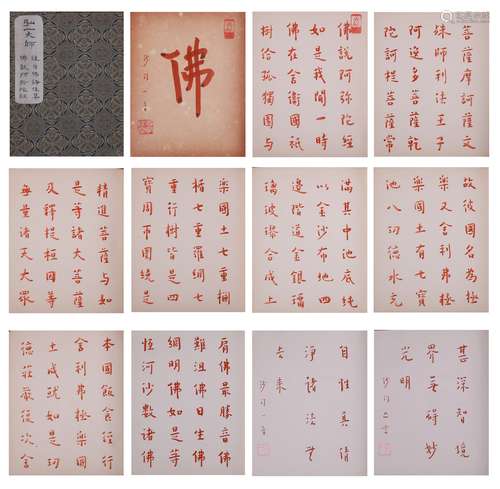 弘一大師
佛
沙門一音
佛說阿彌陀經
如是我聞一時
佛在舍衛國祇
樹給孤獨園與
菩薩摩訶薩文
殊師利法王子
阿逸多菩薩乾
陀訶提菩薩常
精進菩薩與如
是等諸大菩薩
及釋提桓因等
無量諸天大眾
樂國土七重欄
楯七重羅網七
重行樹皆是四
寶周帀圍繞是
滿其中池底純
以金沙布地四
邊階道金銀瑠
璃玻瓈合成上
故彼國名為極
樂又舍利弗極
樂國土有七寶
池八功德水充
本國飯食經行
舍利弗極樂國
土成就如是功
德莊嚴復次舍
肩佛最勝音佛
難沮佛日生佛
網明佛如是等
恒河沙數諸佛
自性真清
淨諸法無
去來
沙門一音
甚深智境
界無礙妙
光明
沙門